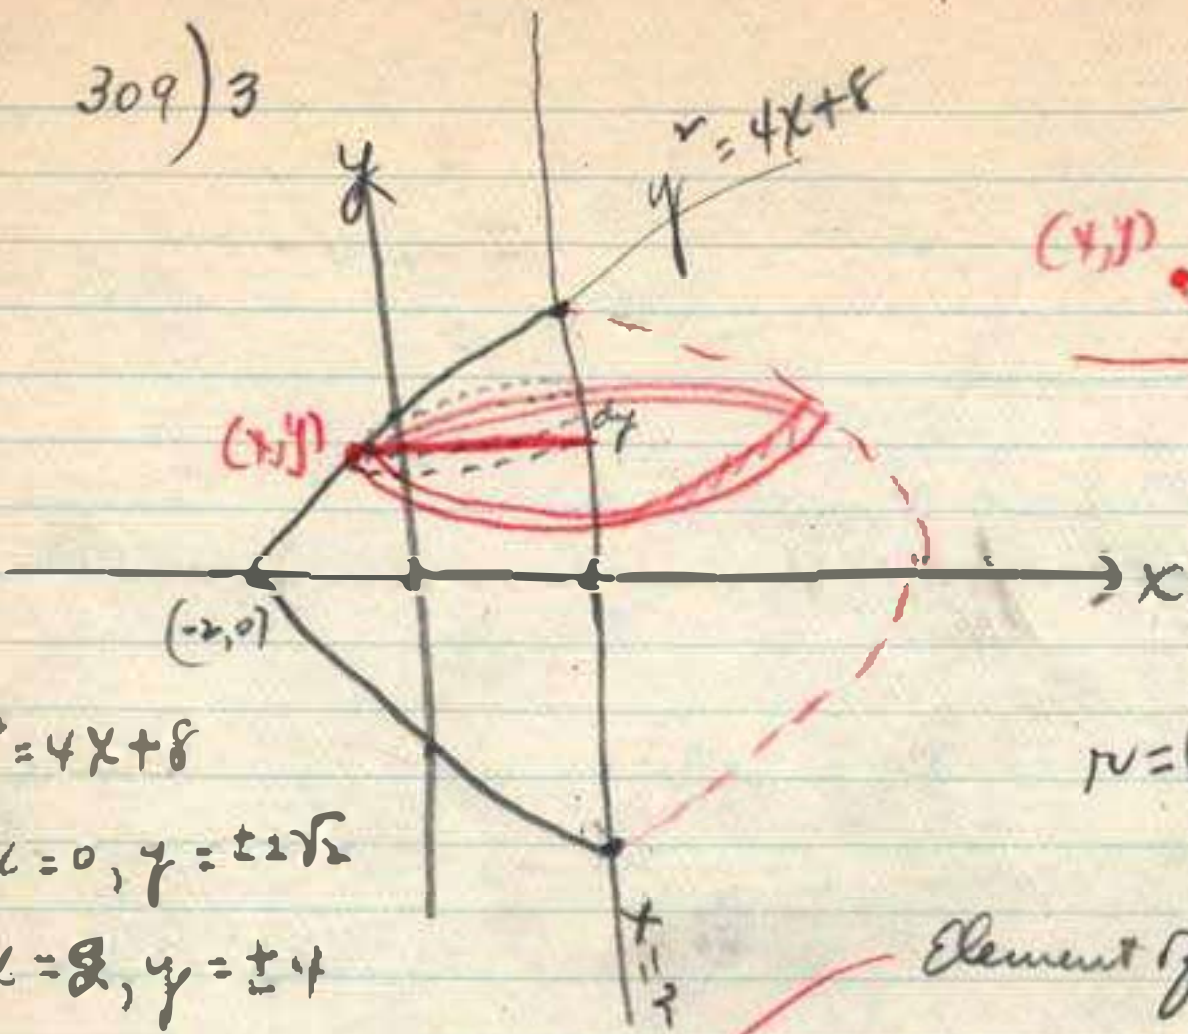 309) 3
y
y² = 4x+8
(x,y)
(x,y)
dy
x
(-2,0)
= 4x+8
=0, y = ±2√2
=2, y = ±4
x=2
Element of